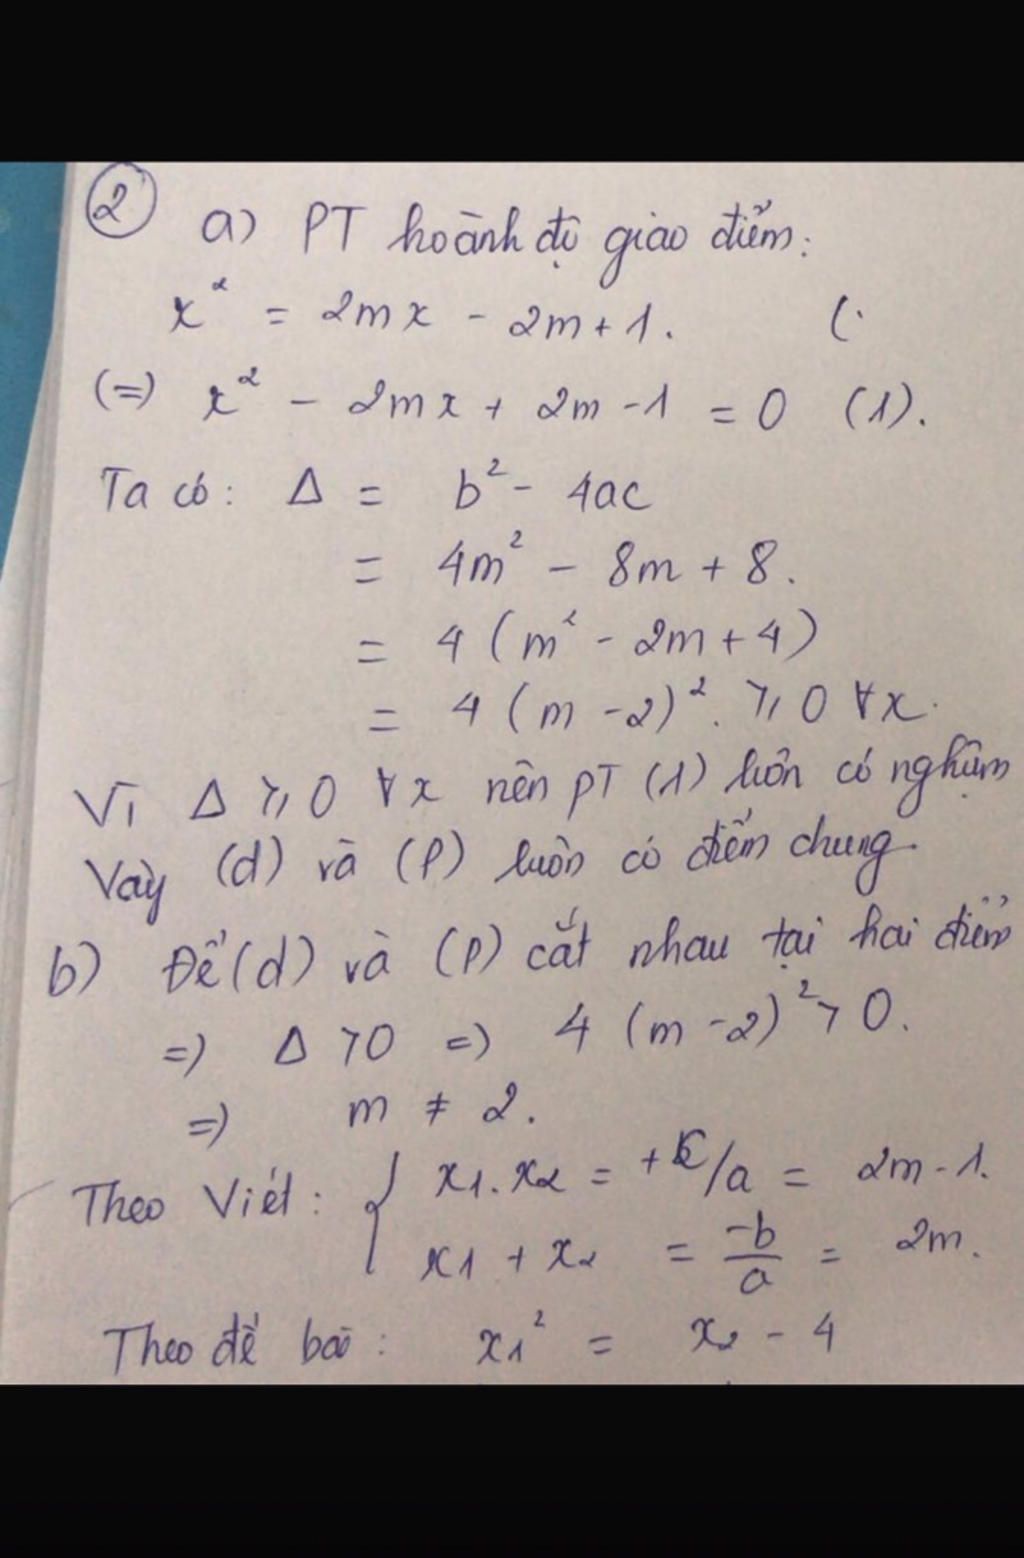 ② a) PT hoành độ giao điểm:
x² = 2mx - 2m + 1. (.
(=) x² - 2mx + 2m - 1 = 0 (1).
Ta có: Δ = b² - 4ac
= 4m² - 8m + 8.
= 4 (m² - 2m + 4)
= 4 (m - 2)². ⩾ 0 ∀x.
Vì Δ ⩾ 0 ∀x nên PT (1) luôn có nghiệm
Vậy (d) và (P) luôn có điểm chung.
b) Để (d) và (P) cắt nhau tại hai điểm
=) Δ > 0 =) 4 (m - 2)² > 0.
=) m ≠ 2.
Theo Viét: { x1.x2 = +c/a = 2m - 1.
x1 + x2 = -b/a = 2m.
Theo đề bài: x1² = x2 - 4